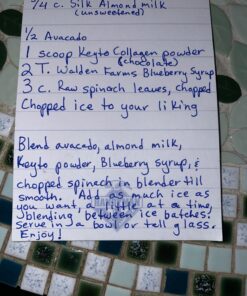 1/4 c. Silk Almond milk
(unsweetened)
1/2 Avacado
1 scoop Keyto Collagen powder
(chocolate)
2 T. Walden Farms Blueberry Syrup
3 c. Raw spinach leaves, chopped
Chopped ice to your liking
Blend avacado, almond milk,
Keyto powder, Blueberry syrup, &
chopped spinach in blender till
smooth. Add as much ice as
you want, a little at a time,
blending between ice batches.
Serve in a bowl or tell glass.
Enjoy!